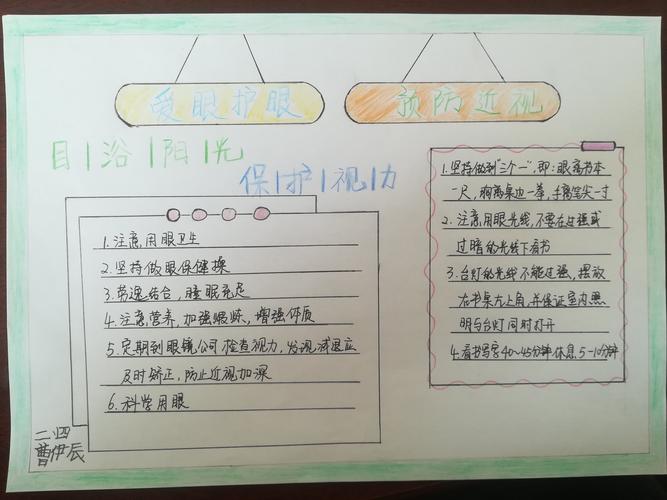 爱眼护眼
预防近视
目|浴|阳|光
保|护|视|力
1.注意用眼卫生
2.坚持做眼保健操
3.劳逸结合，睡眠充足
4.注意营养，加强锻炼，增强体质
5.定期到眼镜公司检查视力，发现减退应
及时矫正，防止近视加深
6.科学用眼
1.坚持做到"三个一"，即：眼离书本
一尺，胸离桌边一拳，手离笔尖一寸
2.注意用眼光线，不要在过强或
过暗的光线下看书
3.台灯的光线不能过强，摆放
在书桌左上角，并保证室内照
明与台灯同时打开
4.看书写字40~45分钟休息5-10分钟
二.四
曹伊辰